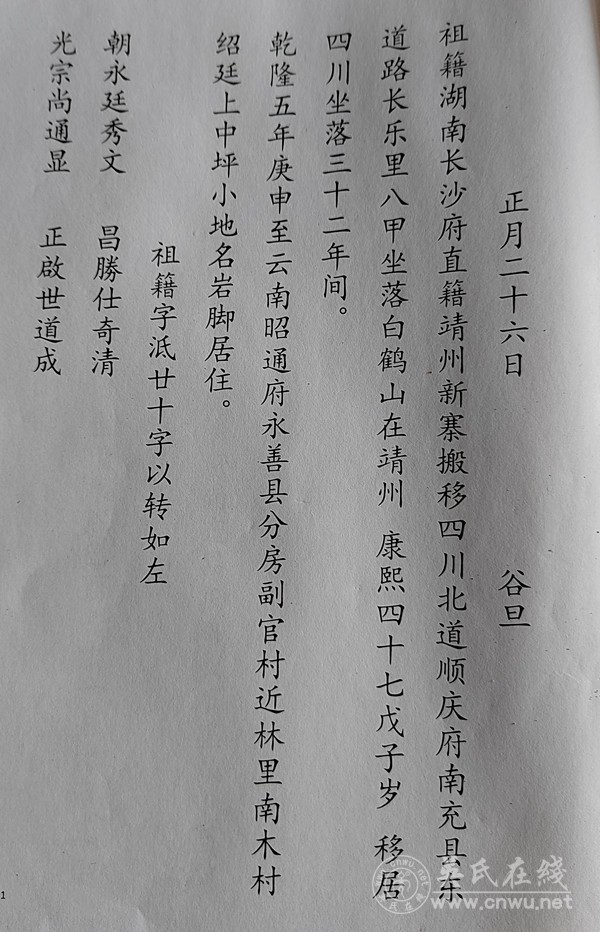 正月二十六日 谷旦
祖籍湖南长沙府直籍靖州新寨搬移四川北道顺庆府南充县东
道路长乐里八甲坐落白鹤山在靖州 康熙四十七戊子岁 移居
四川坐落三十二年间。
乾隆五年庚申至云南昭通府永善县分房副官村近林里南木村
绍廷上中坪小地名岩脚居住。
祖籍字泜廿十字以转如左
朝永廷秀文 昌勝仕奇清
光宗尚通显 正啟世道成
吴氏在线
www.cnwu.net
1